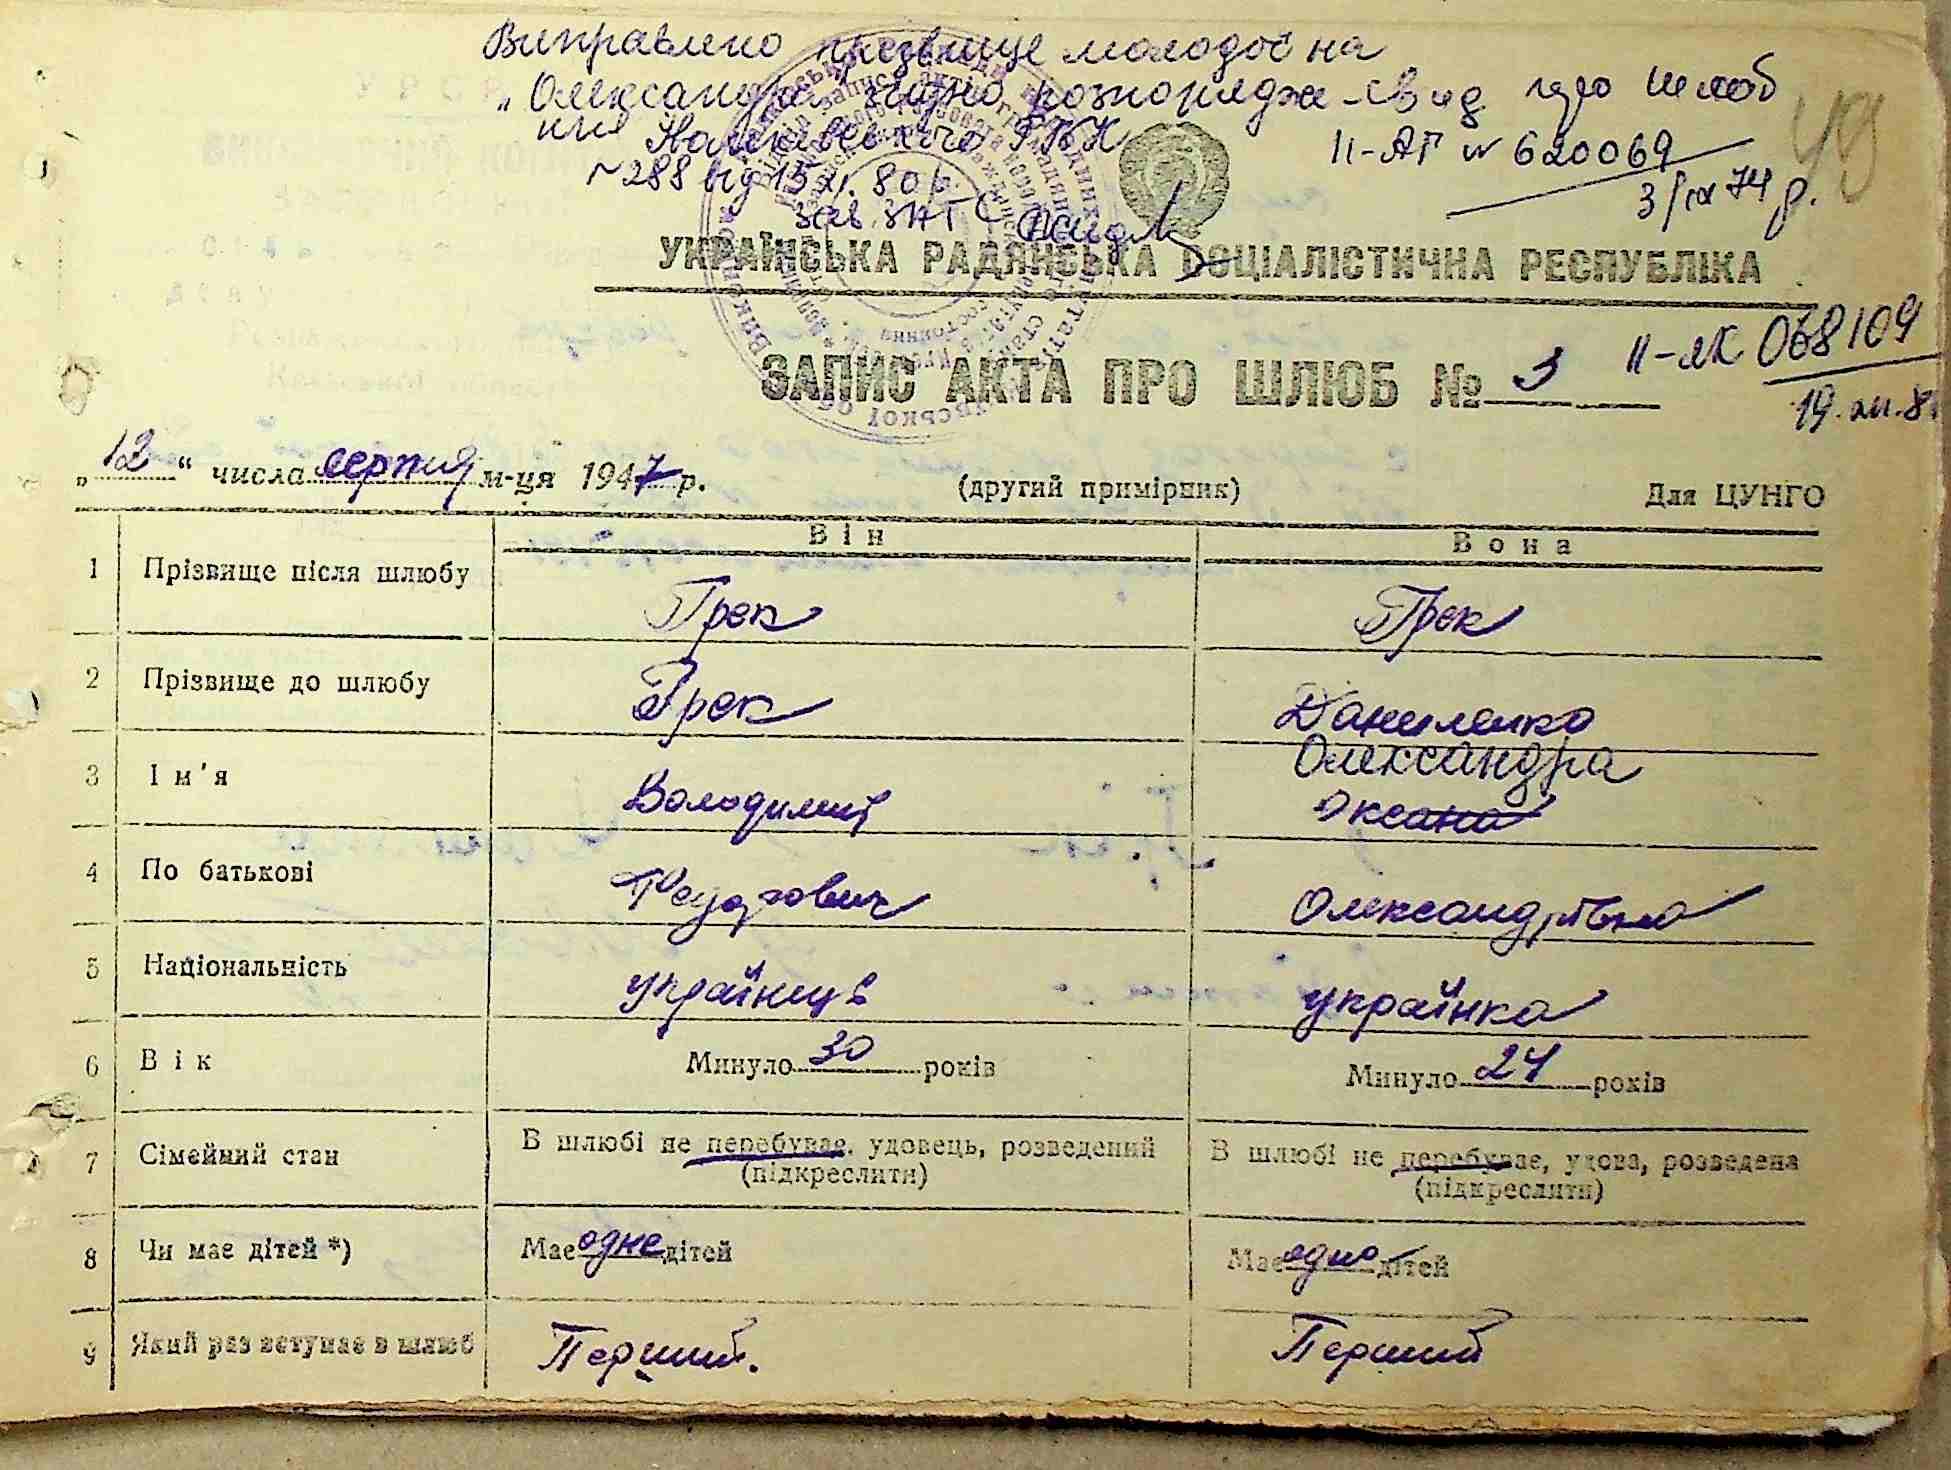 Виправлено прізвище молодої на
„Олександра" згідно розпорядже- Свид про шлюб
ння РВК II-АГ № 620069
№ 288 від 15 XI. 80 р. 3/IX 74 р.
зав. ЗАГС
УКРАЇНСЬКА РАДЯНСЬКА СОЦІАЛІСТИЧНА РЕСПУБЛІКА
ЗАПИС АКТА ПРО ШЛЮБ № 3 II-ЯК 068109
„12" числа серпня м-ця 1947 р. (другий примірник) Для ЦУНГО
Він Вона
1 Прізвище після шлюбу Грек Грек
2 Прізвище до шлюбу Грек Даниленко
Олександра
3 Ім'я Володимир Оксана
4 По батькові Федорович Олександрівна
5 Національність українець українка
6 Вік Минуло 30 років Минуло 24 років
7 Сімейний стан В шлюбі не перебував, удовець, розведений В шлюбі не перебуває, удова, розведена
(підкреслити) (підкреслити)
8 Чи має дітей *) Має одне дітей Має одно дітей
9 Який раз вступає в шлюб Перший. Перший